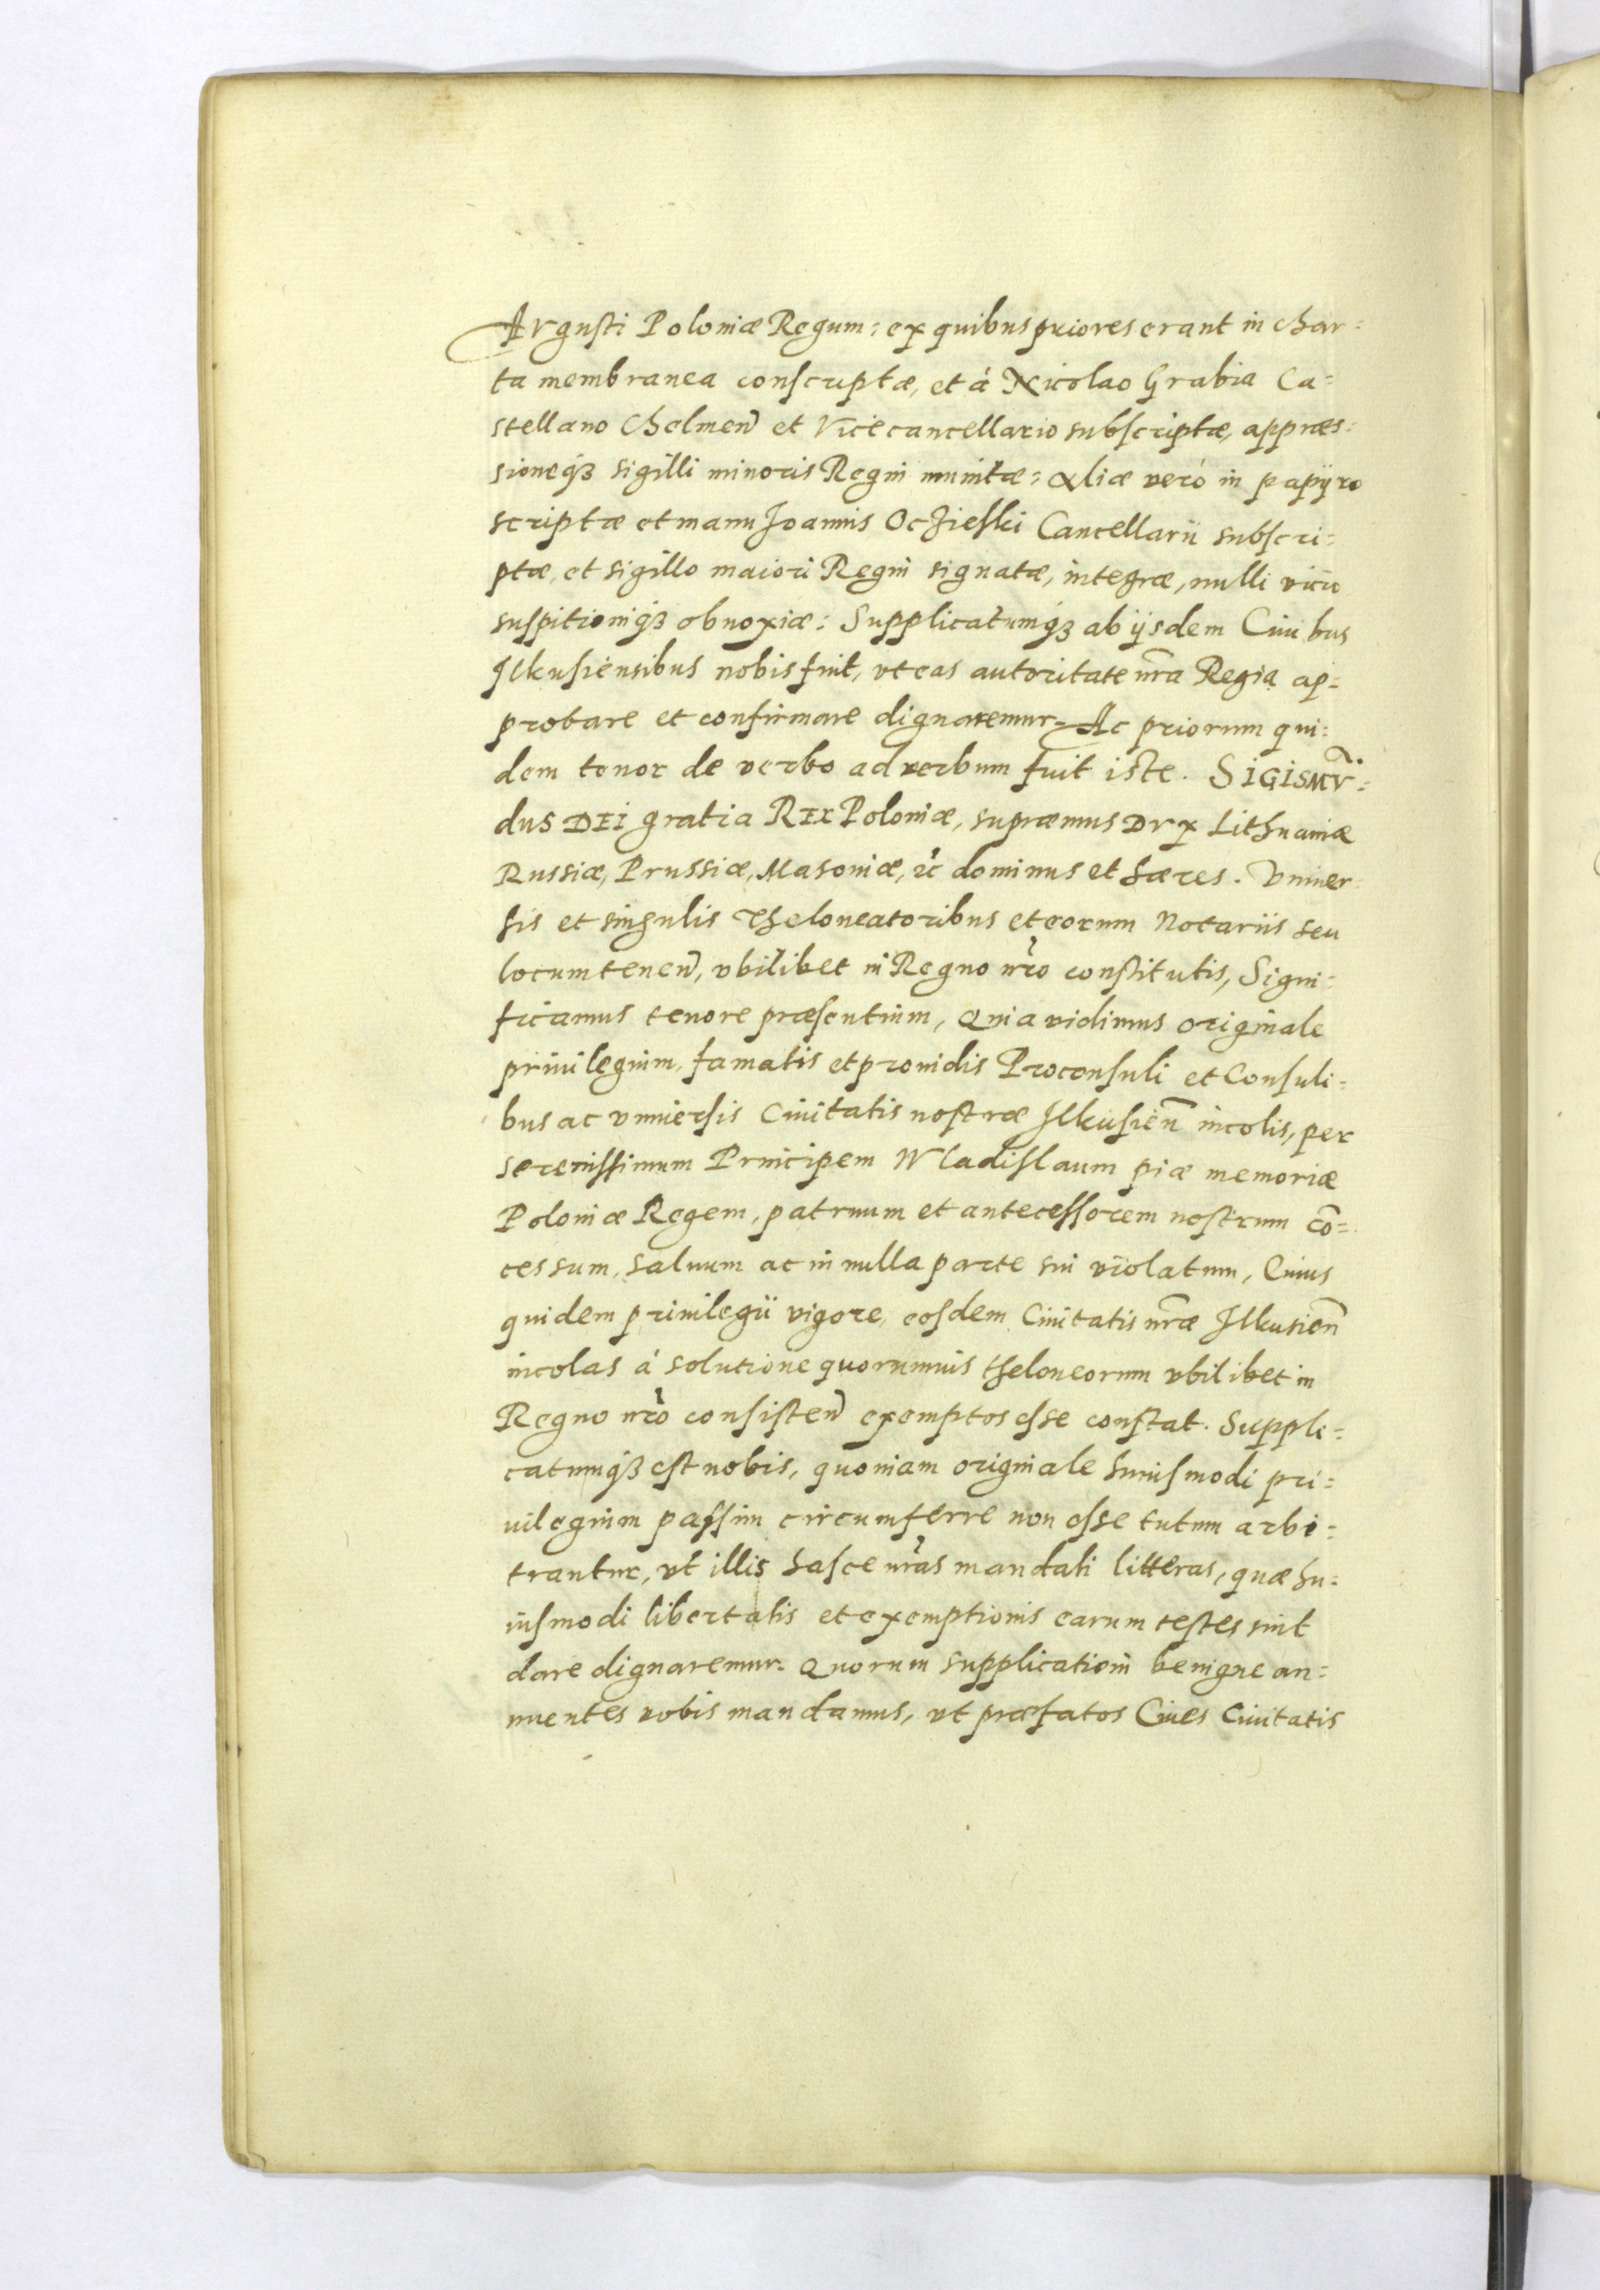 Avgusti Poloniæ Regum: ex quibus priores erant in char=
ta membranea conscriptæ, et à Nicolao Grabia Ca=
stellano Chelmen̄ et Vicecancellario subscriptæ, appræs=
sioneq́ꝫ sigilli minoris Regni munitæ: Aliæ verò in papÿro
scriptæ et manu Joannis Oczieski Cancellarii subscri=
ptæ, et sigillo maiori Regni signatæ, integræ, nulli vicio
suspitioniq́ꝫ obnoxiæ: Supplicatumq́ꝫ ab ijsdem Ciuibus
Ilkusiensibus nobis fuit, vt eas autoritate nr̄a Regia ap=
probare et confirmare dignaremur. Ac priorum qui=
dem tenor de verbo ad verbum fuit iste. SIGISMV̄=
dus DEI gratia REX Poloniæ, supræmus Dvx Lithuaniæ
Russiæ, Prussiæ, Masoniæ, ꝛc̄ dominus et hæres. Vniuer
sis et singulis Theloneatoribus et eorum Notariis seu
locumtenen̄, vbilibet in Regno nr̄o constitutis, Signi=
ficamus tenore præsentium, Quia vidimus originale
priuilegium, famatis et prouidis Proconsuli et Consuli=
bus ac vniuersis Ciuitatis nostræ Ilkusien̄ incolis, per
serenissimum Principem Wladislaum piæ memoriæ
Poloniæ Regem, patruum et antecessorem nostrum cō=
cessum, saluum ac in nulla parte sui violatum, Cuius
quidem priuilegii vigore, eosdem Ciuitatis nr̄æ Ilkusien̄
incolas à solutione quorumuis theloneorum vbilibet in
Regno nr̄o consisten̄ exemptos esse constat. Suppli=
catumq́ꝫ est nobis, quoniam originale huiusmodi pri=
uilegium passim circumferre non esse tutum arbi=
trantur, vt illis hasce nr̄as mandati litteras, quæ hu=
iusmodi libertatis et exemptionis earum testes sint
dare dignaremur. Quorum supplicationi benigne an=
nuentes vobis mandamus, vt præfatos Ciues Ciuitatis